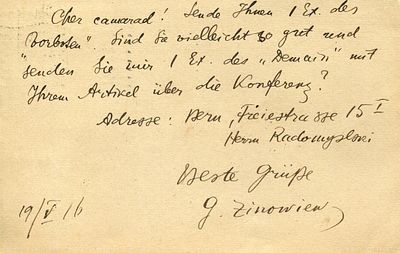 Cher camarad! Sende Ihnen 1 Ex. des
"Vorboten". Sind Sie vielleicht so gut und
senden Sie mir 1 Ex. des "Demain" mit
Ihrem Artikel über die Konferenz?
Adresse: Bern, Freiestrasse 15 I
Herrn Radomyslski
Beste Grüße
G. Zinowiew
19/V 16